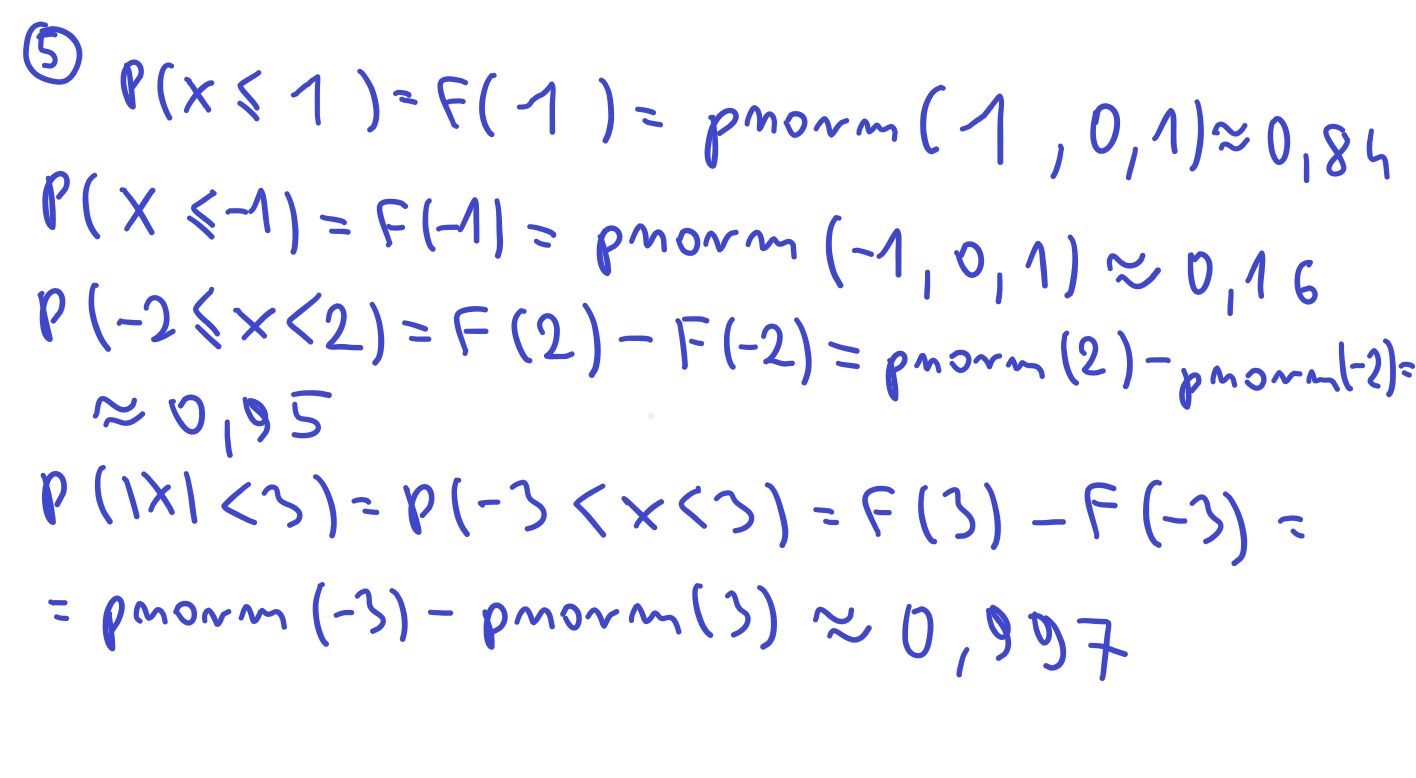 ⑤ P(x ≤ 1) = F(1) = pnorm(1, 0, 1) ≈ 0,84
P(X ≤ -1) = F(-1) = pnorm(-1, 0, 1) ≈ 0,16
P(-2 ≤ x < 2) = F(2) - F(-2) = pnorm(2) - pnorm(-2) =
≈ 0,95
P(|X| < 3) = P(-3 < x < 3) = F(3) - F(-3) =
= pnorm(-3) - pnorm(3) ≈ 0,997